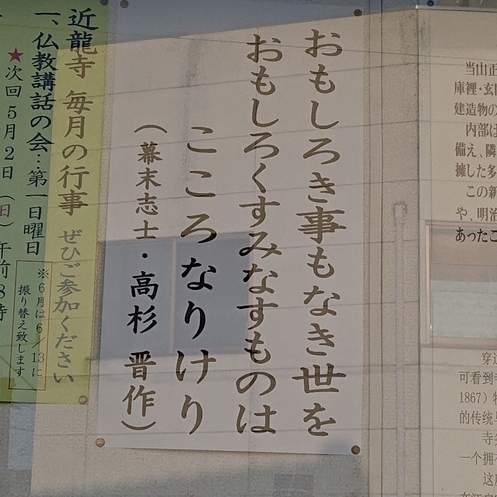 おもしろき事もなき世を
おもしろくすみなすものは
こころなりけり
（幕末志士・高杉 晋作）
近龍寺 毎月の行事 ぜひご参加ください
一、仏教講話の会…第一日曜日
※６月は6／13に
振り替え致します
★次回５月２日（日）午前8時
当山正
庫裡・玄
建造物の
内部は
備え、隣
擁した多
この新
や、明治
あったこ
穿
可看到
1867）
的传统
寺
一个拥